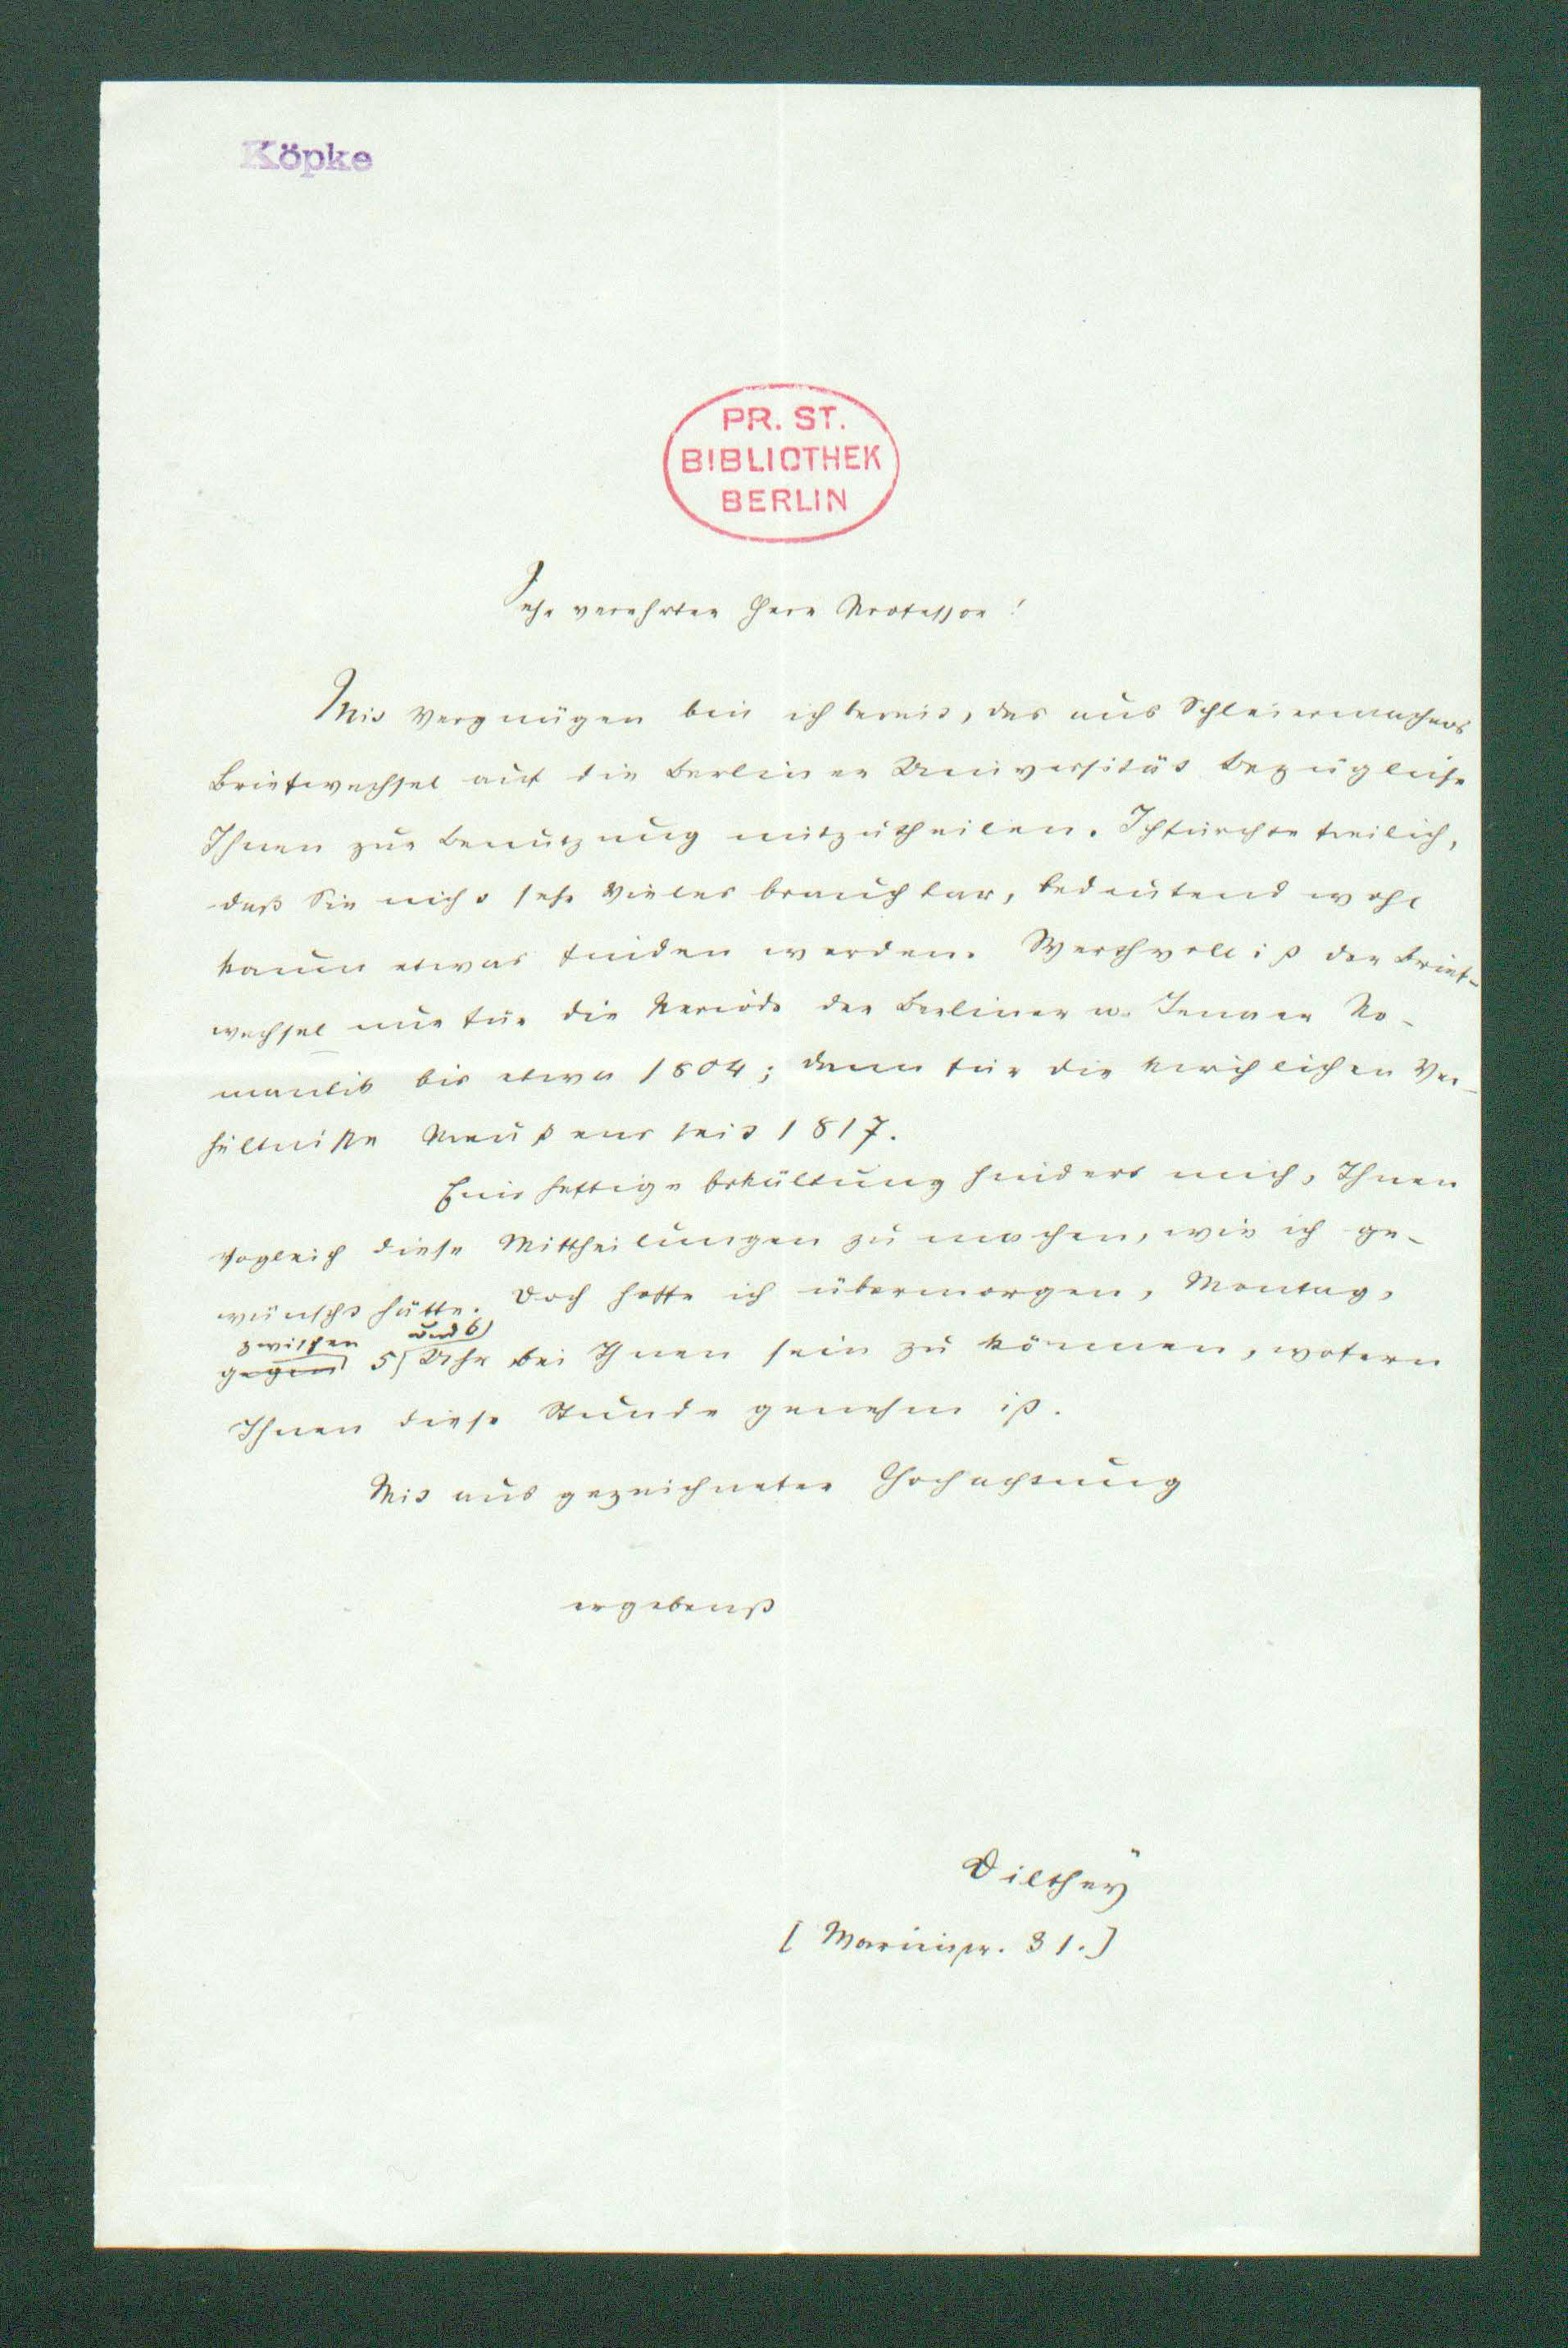 Köpke
PR. ST.
BIBLIOTHEK
BERLIN
Sehr verehrter Herr Professor!
Mit Vergnügen bin ich bereit, das aus Schleiermachers
Briefwechsel auf die Berliner Universität bezügliche
Ihnen zur Benutzung mitzutheilen. Ich fürchte freilich,
daß Sie nicht sehr Vieles brauchbar, bedeutend wohl
kaum etwas finden werden. Werthvoll ist der Brief-
wechsel nur für die Periode der Berliner u. Jenaer Ro-
mantik bis etwa 1804; dann für die kirchlichen Ver-
hältniße Preußens seit 1817.
Eine heftige Erkältung hindert mich, Ihnen
sogleich diese Mittheilungen zu machen, wie ich ge-
wünscht hätte. Doch hoffe ich übermorgen, Montag,
zwischen und 6
gegen 5 Uhr bei Ihnen sein zu können, wofern
Ihnen diese Stunde genehm ist.
Mit ausgezeichneter Hochachtung
ergebenst
Dilthey
[ 31.]